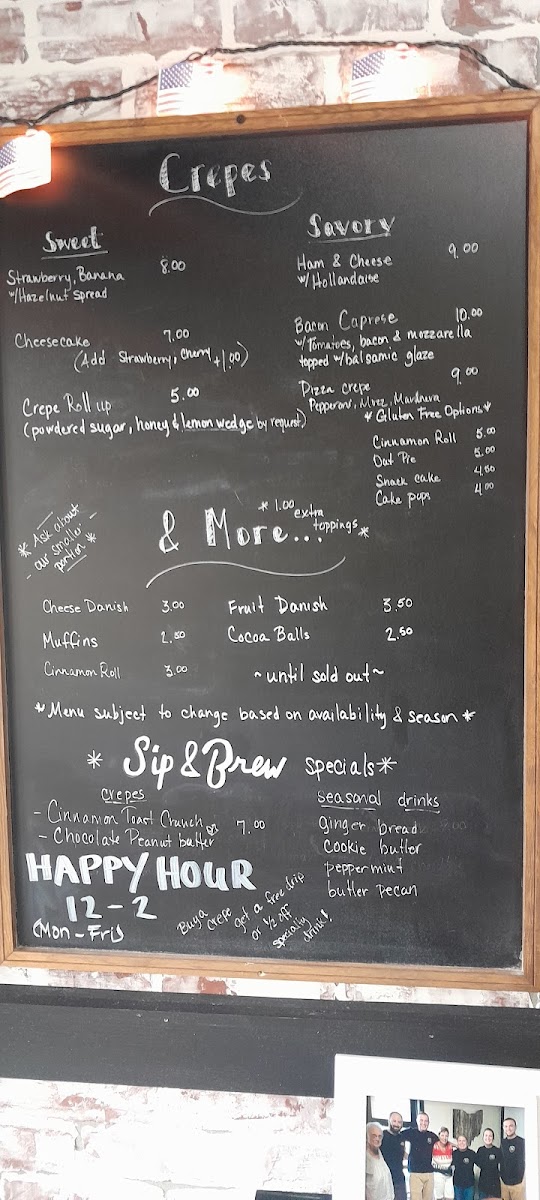 Crepes
Sweet
Strawberry, Banana 8.00
w/Hazelnut Spread
Cheesecake 7.00
(Add Strawberry, Cherry +1.00)
Crepe Roll up 5.00
(powdered sugar, honey & lemon wedge by request)
Savory
Ham & Cheese 9.00
w/Hollandaise
Bacon Caprese 10.00
w/Tomatoes, bacon & mozzarella
topped w/balsamic glaze
Pizza crepe 9.00
Pepperoni, Mozz, Marinara
*Gluten Free Options*
Cinnamon Roll 5.00
Oat Pie 5.00
Snack cake 4.50
Cake pops 4.00
*Ask about
our smaller
portion*
& More...
*1.00 extra
toppings*
Cheese Danish 3.00
Muffins 2.50
Cinnamon Roll 3.00
Fruit Danish 3.50
Cocoa Balls 2.50
~until sold out~
*Menu subject to change based on availability & season*
* Sip & Brew specials*
crepes
- Cinnamon Toast Crunch
- Chocolate Peanut butter 7.00
seasonal drinks
ginger bread
cookie butter
peppermint
butter pecan
HAPPY HOUR
12-2
(Mon-Fri)
Buy a
Crepe get a free drip
or 1/2 off
specialty
drink!